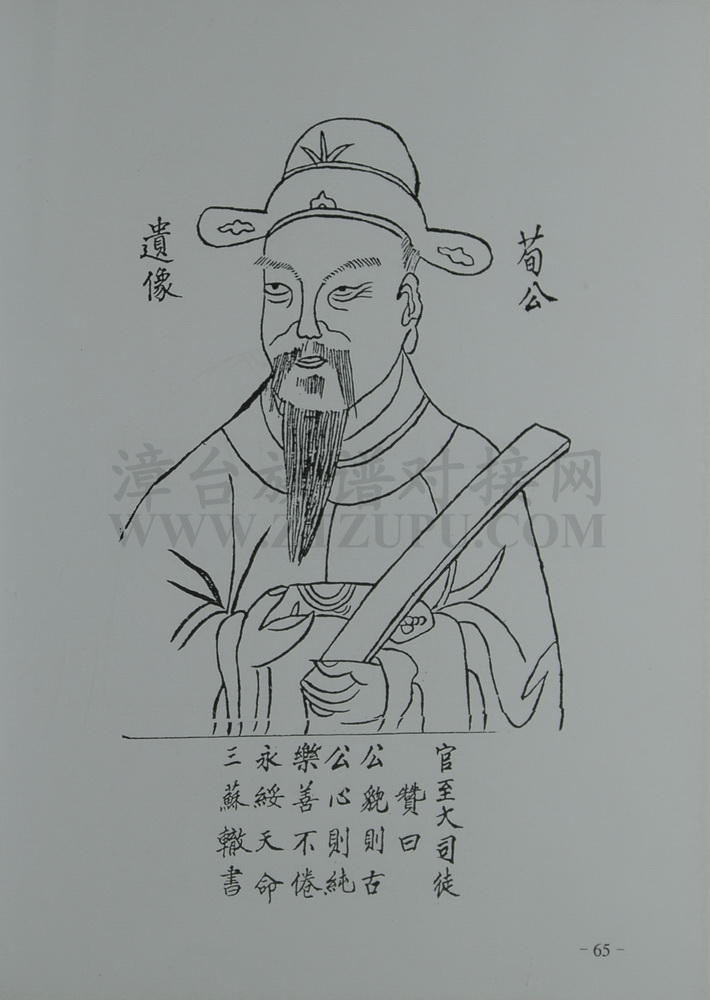 荀公
遺像
漳台族谱对接网
WWW.ZTZUPU.COM
官至大司徒
贊曰
公貌則古
公心則純
樂善不倦
永綏天命
三蘇轍書
- 65 -